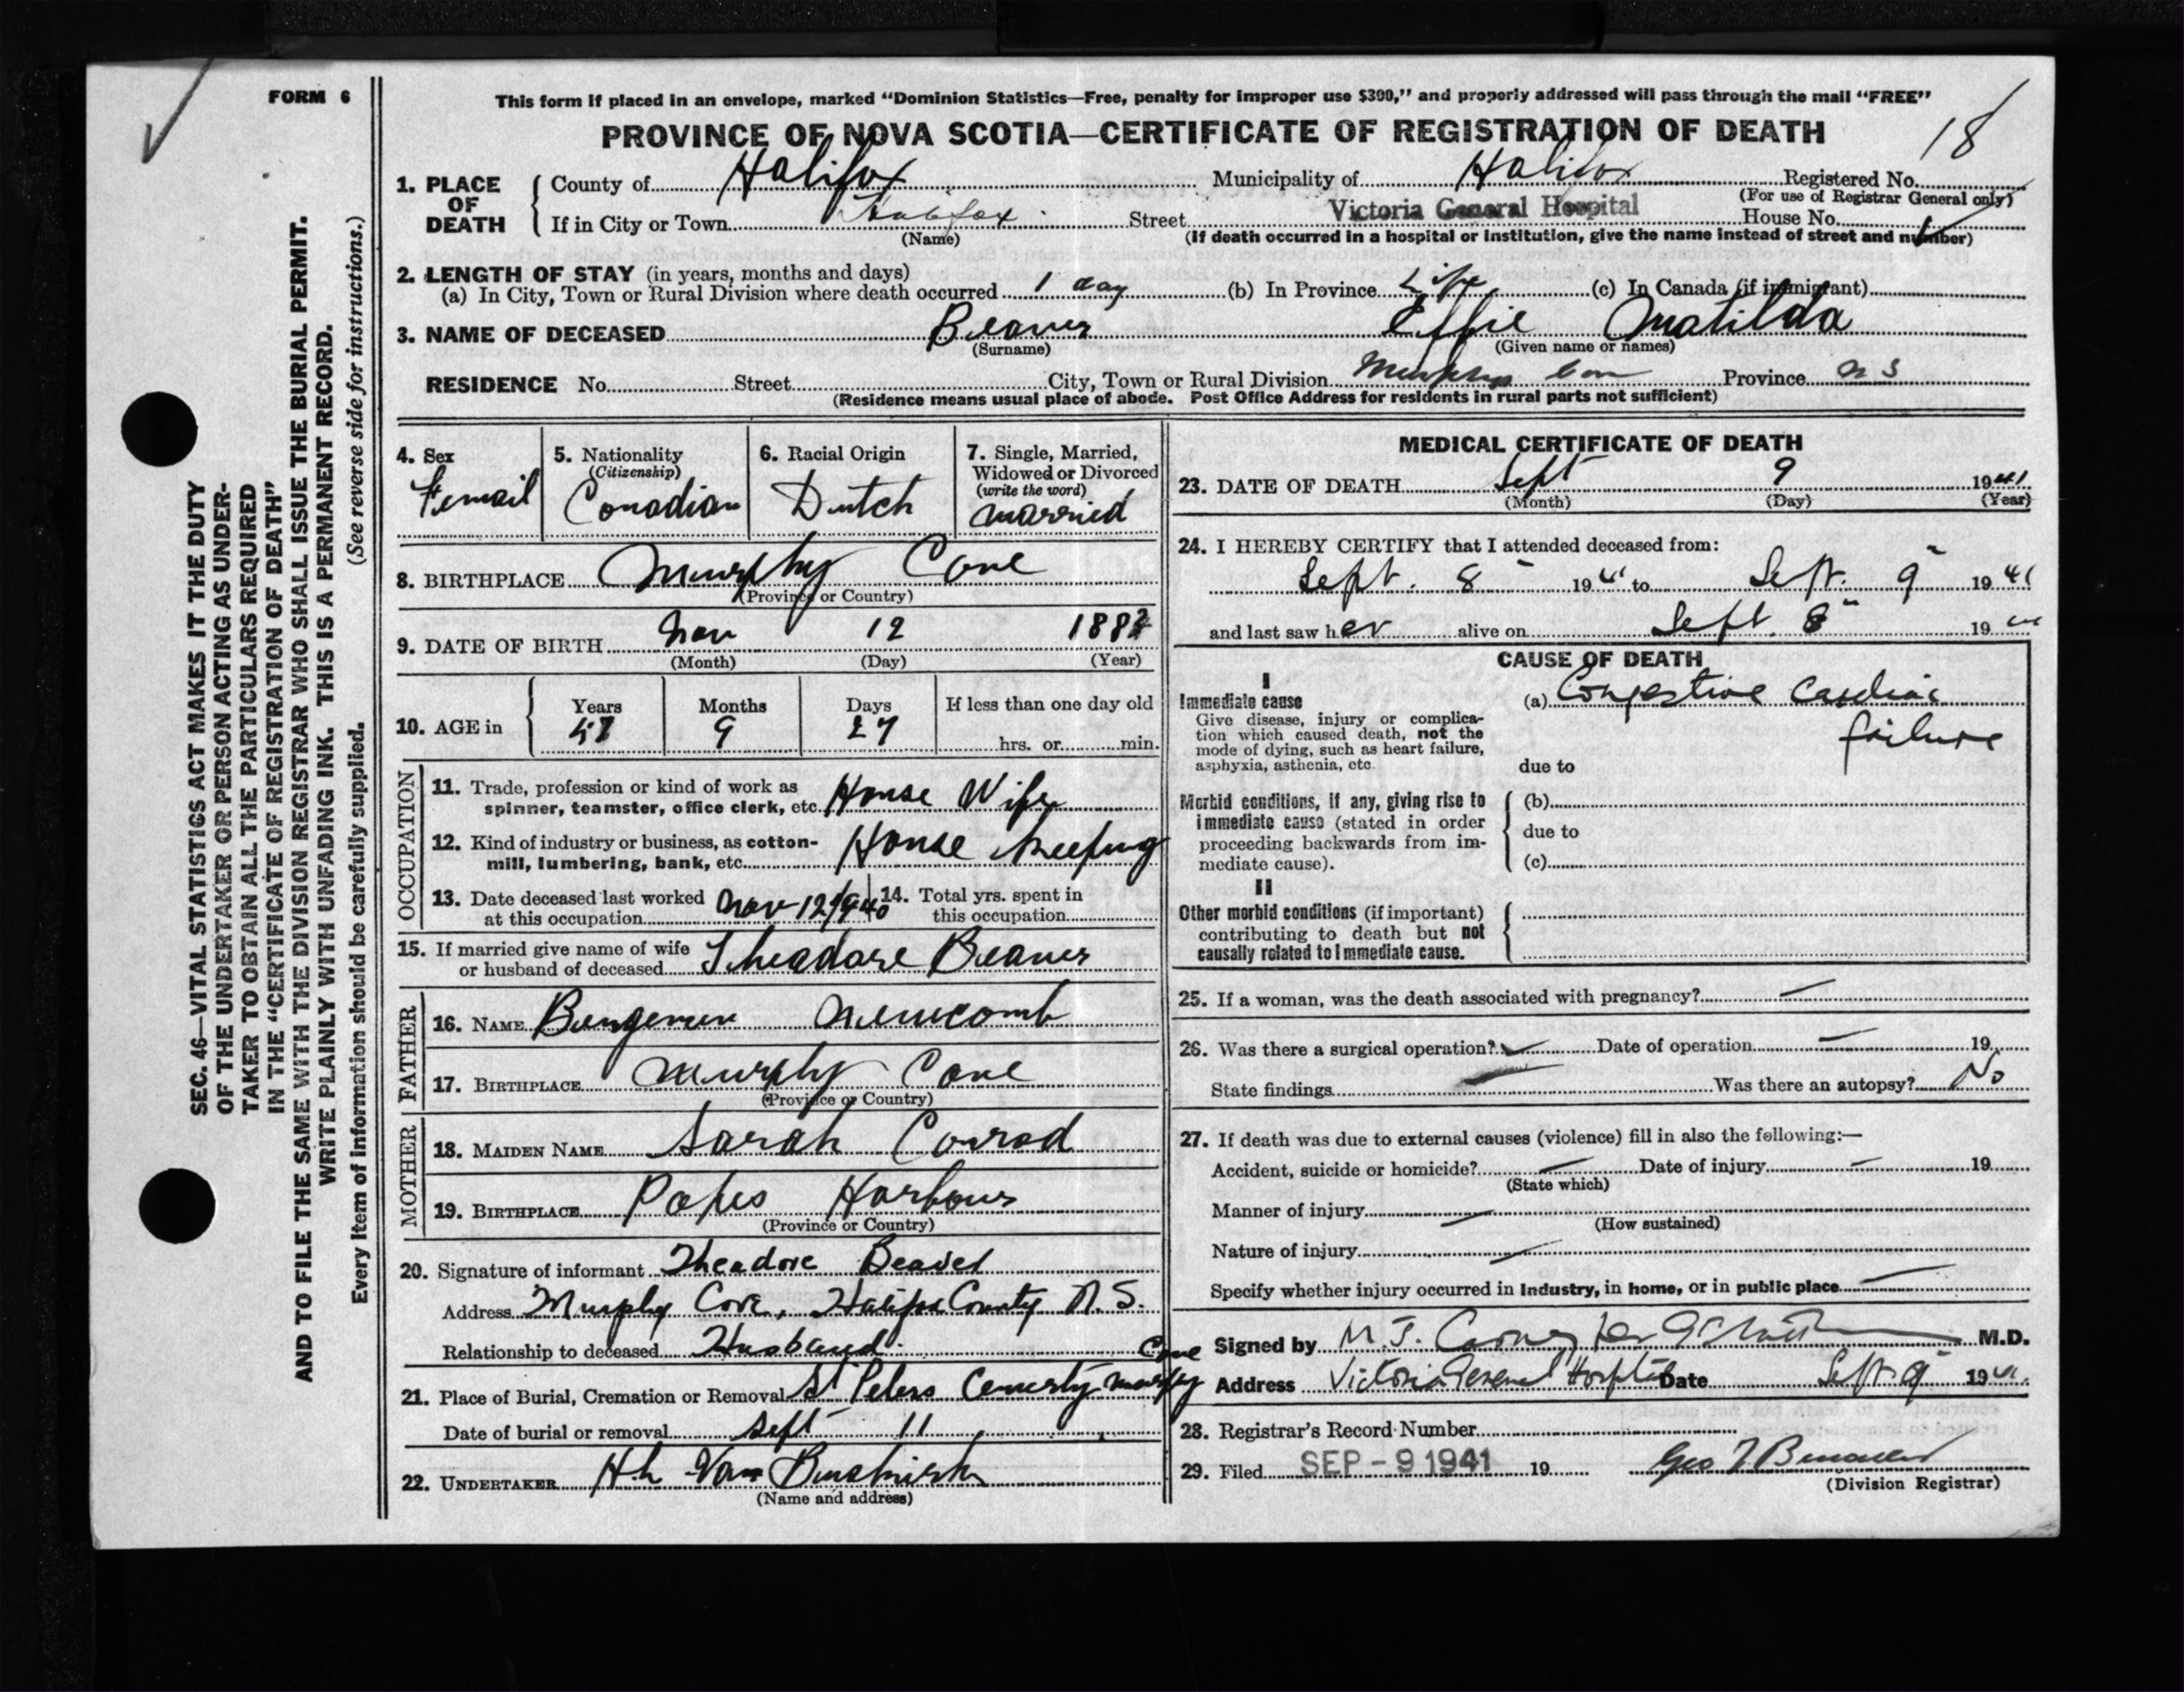 FORM 6
This form if placed in an envelope, marked "Dominion Statistics—Free, penalty for improper use $300," and properly addressed will pass through the mail "FREE"
PROVINCE OF NOVA SCOTIA—CERTIFICATE OF REGISTRATION OF DEATH
18
1. PLACE OF DEATH
County of Halifax Municipality of Halifax Registered No.
(For use of Registrar General only)
If in City or Town Halifax Street Victoria General Hospital House No.
(Name) (If death occurred in a hospital or institution, give the name instead of street and number)
2. LENGTH OF STAY (in years, months and days)
(a) In City, Town or Rural Division where death occurred 1 day (b) In Province Life (c) In Canada (if immigrant)
3. NAME OF DECEASED Beaver Effie Matilda
(Surname) (Given name or names)
RESIDENCE No. Street City, Town or Rural Division Murphys Cove Province N S
(Residence means usual place of abode. Post Office Address for residents in rural parts not sufficient)
4. Sex Femail
5. Nationality (Citizenship) Canadian
6. Racial Origin Dutch
7. Single, Married, Widowed or Divorced (write the word) Married
8. BIRTHPLACE Murphy Cove
(Province or Country)
9. DATE OF BIRTH Nov 12
(Month) (Day) (Year)
10. AGE in Years 57 Months 9 Days 27 If less than one day old
hrs. or min.
OCCUPATION
11. Trade, profession or kind of work as
spinner, teamster, office clerk, etc. House Wife
12. Kind of industry or business, as cotton-
mill, lumbering, bank, etc. House Keeping
13. Date deceased last worked
at this occupation Nov 12/1940
14. Total yrs. spent in
this occupation
15. If married give name of wife
or husband of deceased Theadore Beaver
FATHER
16. NAME Newcomb
17. BIRTHPLACE Murphy Cove
(Province or Country)
MOTHER
18. MAIDEN NAME Sarah Conrod
19. BIRTHPLACE Popes Harbour
(Province or Country)
20. Signature of informant Theadore Beaver
Address Murphy Cove, Halifax County N.S.
Relationship to deceased Husband
21. Place of Burial, Cremation or Removal St Peters Cemerty Murphy Cove
Date of burial or removal Sept 11
22. UNDERTAKER Van Buskirk
(Name and address)
MEDICAL CERTIFICATE OF DEATH
23. DATE OF DEATH Sept 9 1941
(Month) (Day) (Year)
24. I HEREBY CERTIFY that I attended deceased from:
Sept. 8 1941 to Sept. 9 1941
and last saw her alive on Sept. 8 1941
CAUSE OF DEATH
I
Immediate cause
Give disease, injury or complica-
tion which caused death, not the
mode of dying, such as heart failure,
asphyxia, asthenia, etc.
(a) Congestive Cardiac
failure
due to
Morbid conditions, if any, giving rise to
immediate cause (stated in order
proceeding backwards from im-
mediate cause).
(b)
due to
(c)
II
Other morbid conditions (if important)
contributing to death but not
causally related to immediate cause.
25. If a woman, was the death associated with pregnancy? —
26. Was there a surgical operation? Date of operation — 19
State findings Was there an autopsy? No
27. If death was due to external causes (violence) fill in also the following:—
Accident, suicide or homicide? — Date of injury — 19
(State which)
Manner of injury —
(How sustained)
Nature of injury —
Specify whether injury occurred in industry, in home, or in public place —
Signed by M.D.
Address Victoria General Hospital Date Sept 9 1941
28. Registrar's Record Number
29. Filed SEP - 9 1941 19
(Division Registrar)
SEC. 46—VITAL STATISTICS ACT MAKES IT THE DUTY
OF THE UNDERTAKER OR PERSON ACTING AS UNDER-
TAKER TO OBTAIN ALL THE PARTICULARS REQUIRED
IN THE "CERTIFICATE OF REGISTRATION OF DEATH"
AND TO FILE THE SAME WITH THE DIVISION REGISTRAR WHO SHALL ISSUE THE BURIAL PERMIT.
WRITE PLAINLY WITH UNFADING INK. THIS IS A PERMANENT RECORD.
Every item of information should be carefully supplied. (See reverse side for instructions.)